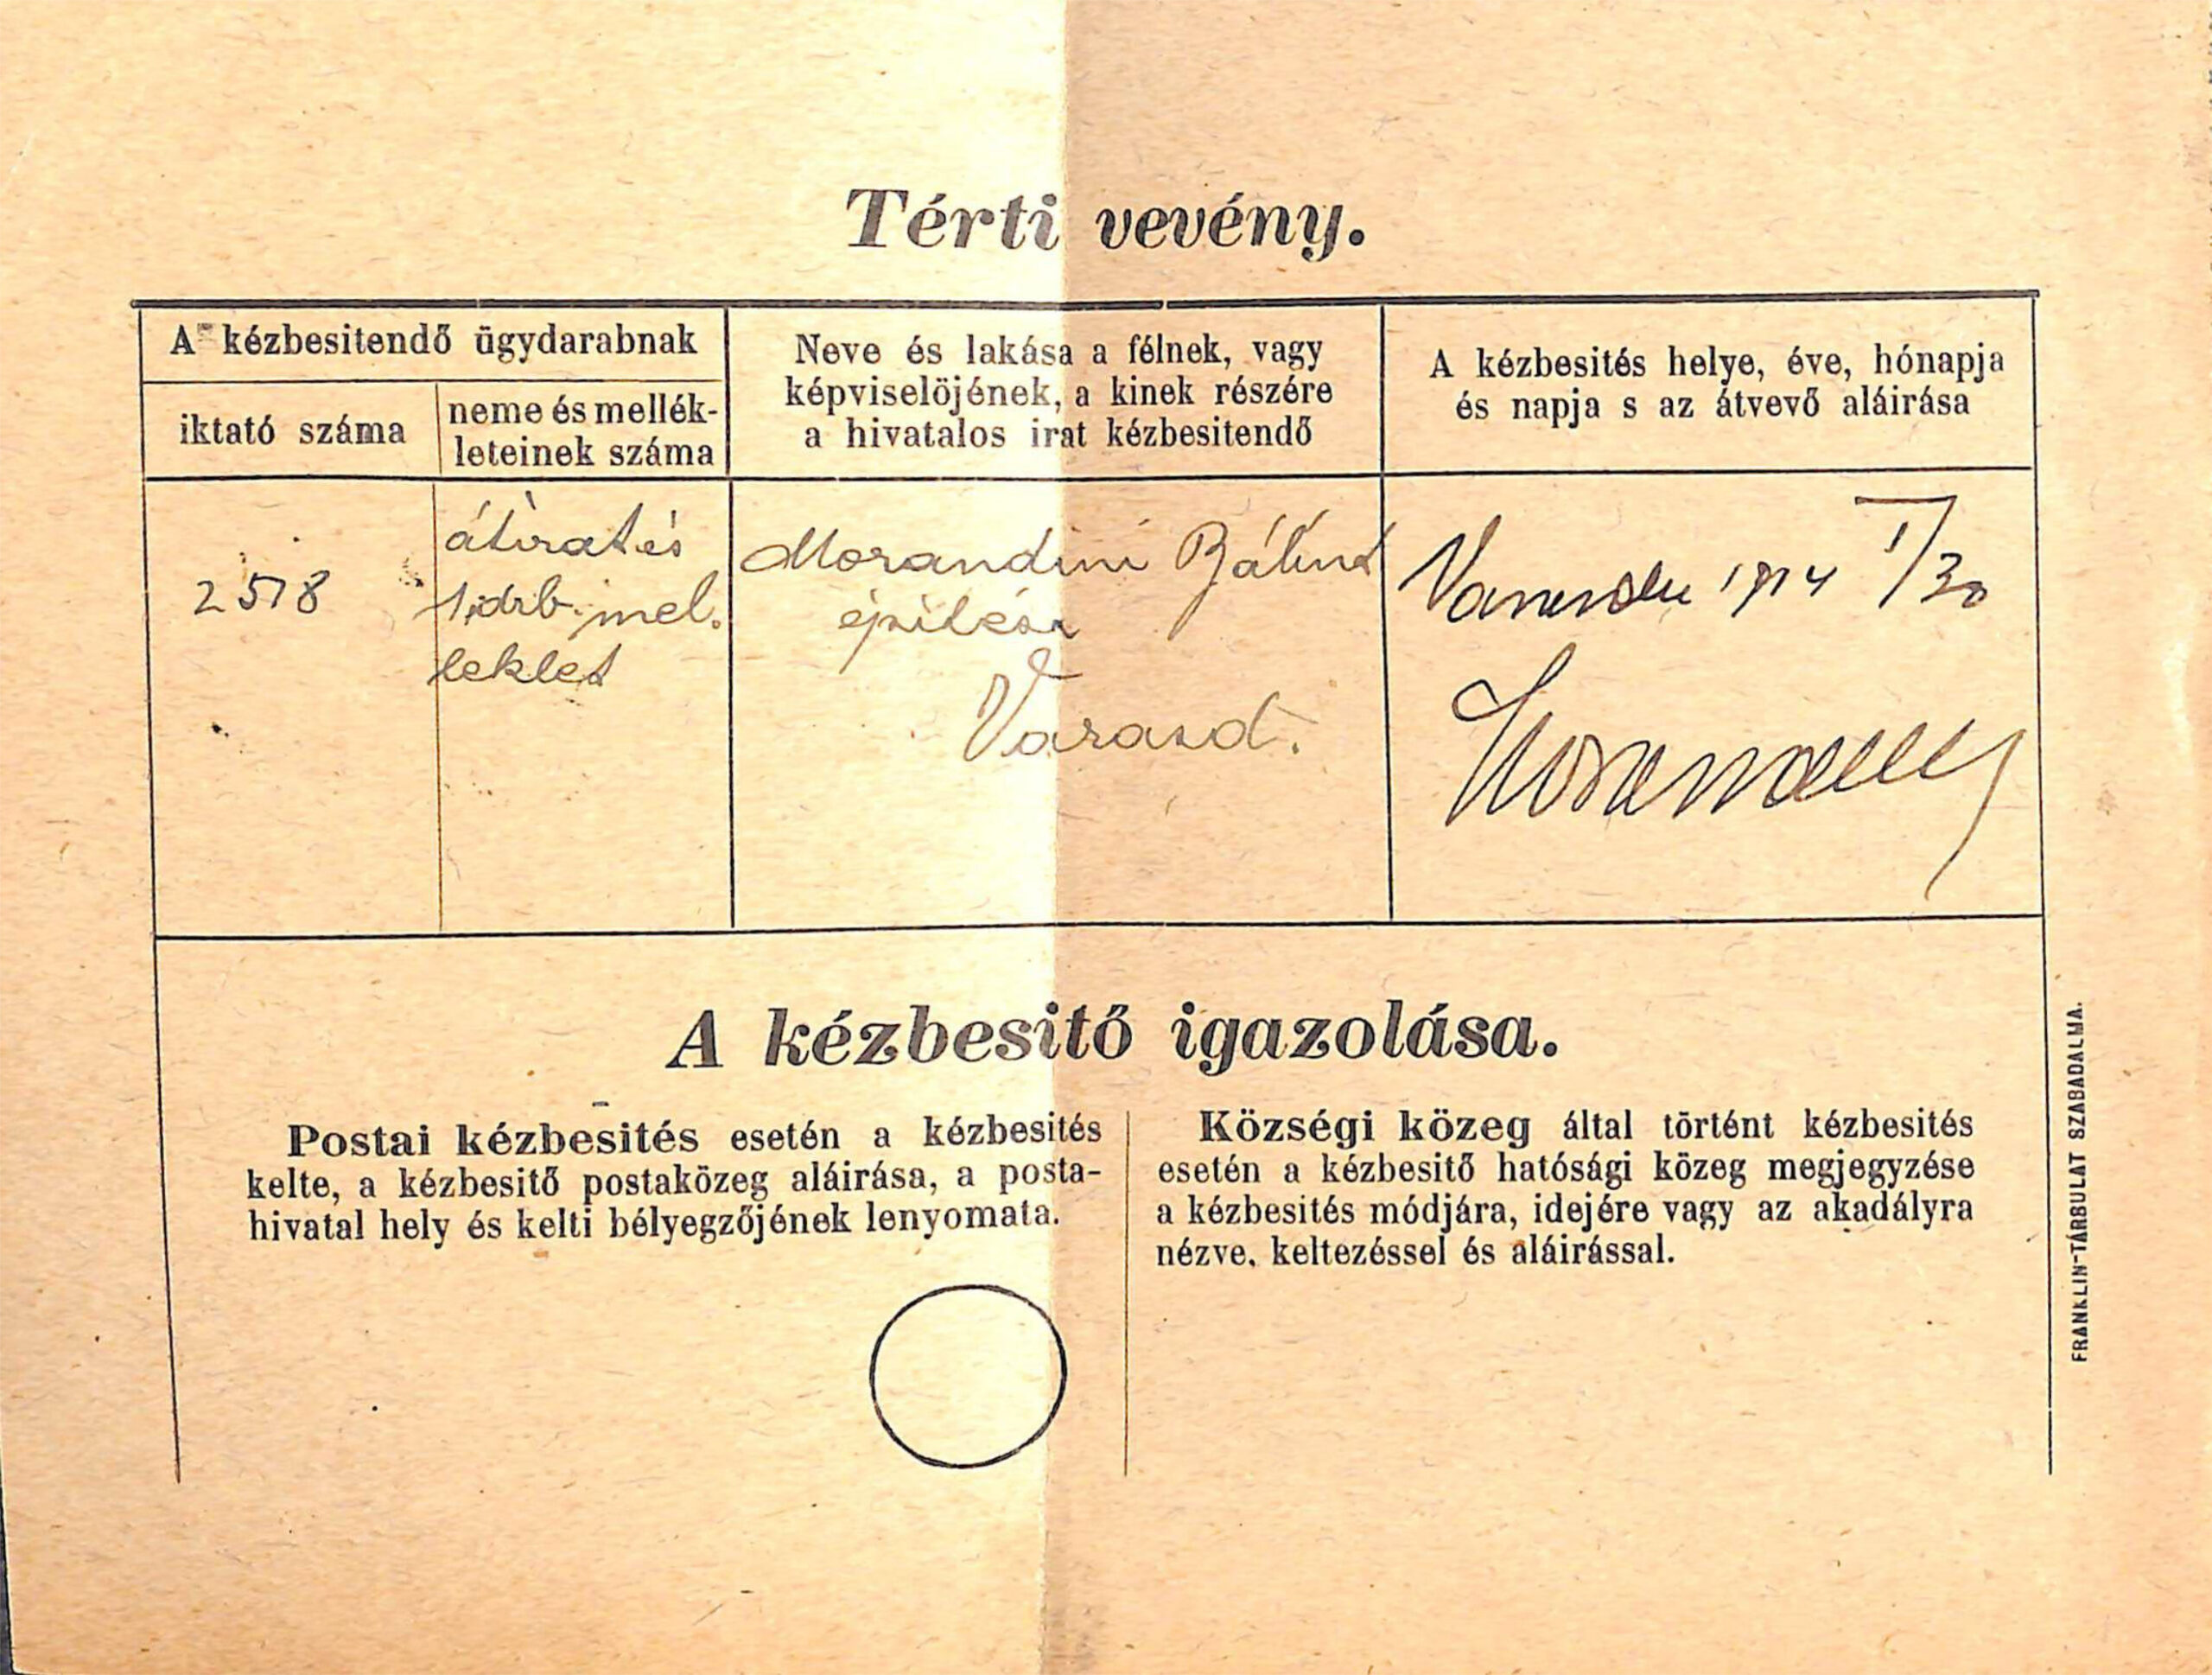 Térti vevény.
A kézbesitendő ügydarabnak
iktató száma
neme és mellék-
leteinek száma
Neve és lakása a félnek, vagy
képviselöjének, a kinek részére
a hivatalos irat kézbesitendő
A kézbesités helye, éve, hónapja
és napja s az átvevő aláirása
2518
átirat és
1 drb. mel.
leklet
Morandini Bálint
épitész
Varasd.
1914 I/30
A kézbesitő igazolása.
Postai kézbesités esetén a kézbesités
kelte, a kézbesitő postaközeg aláirása, a posta-
hivatal hely és kelti bélyegzőjének lenyomata.
Községi közeg által történt kézbesités
esetén a kézbesitő hatósági közeg megjegyzése
a kézbesités módjára, idejére vagy az akadályra
nézve, keltezéssel és aláirással.
FRANKLIN-TÁRSULAT SZABADALMA.